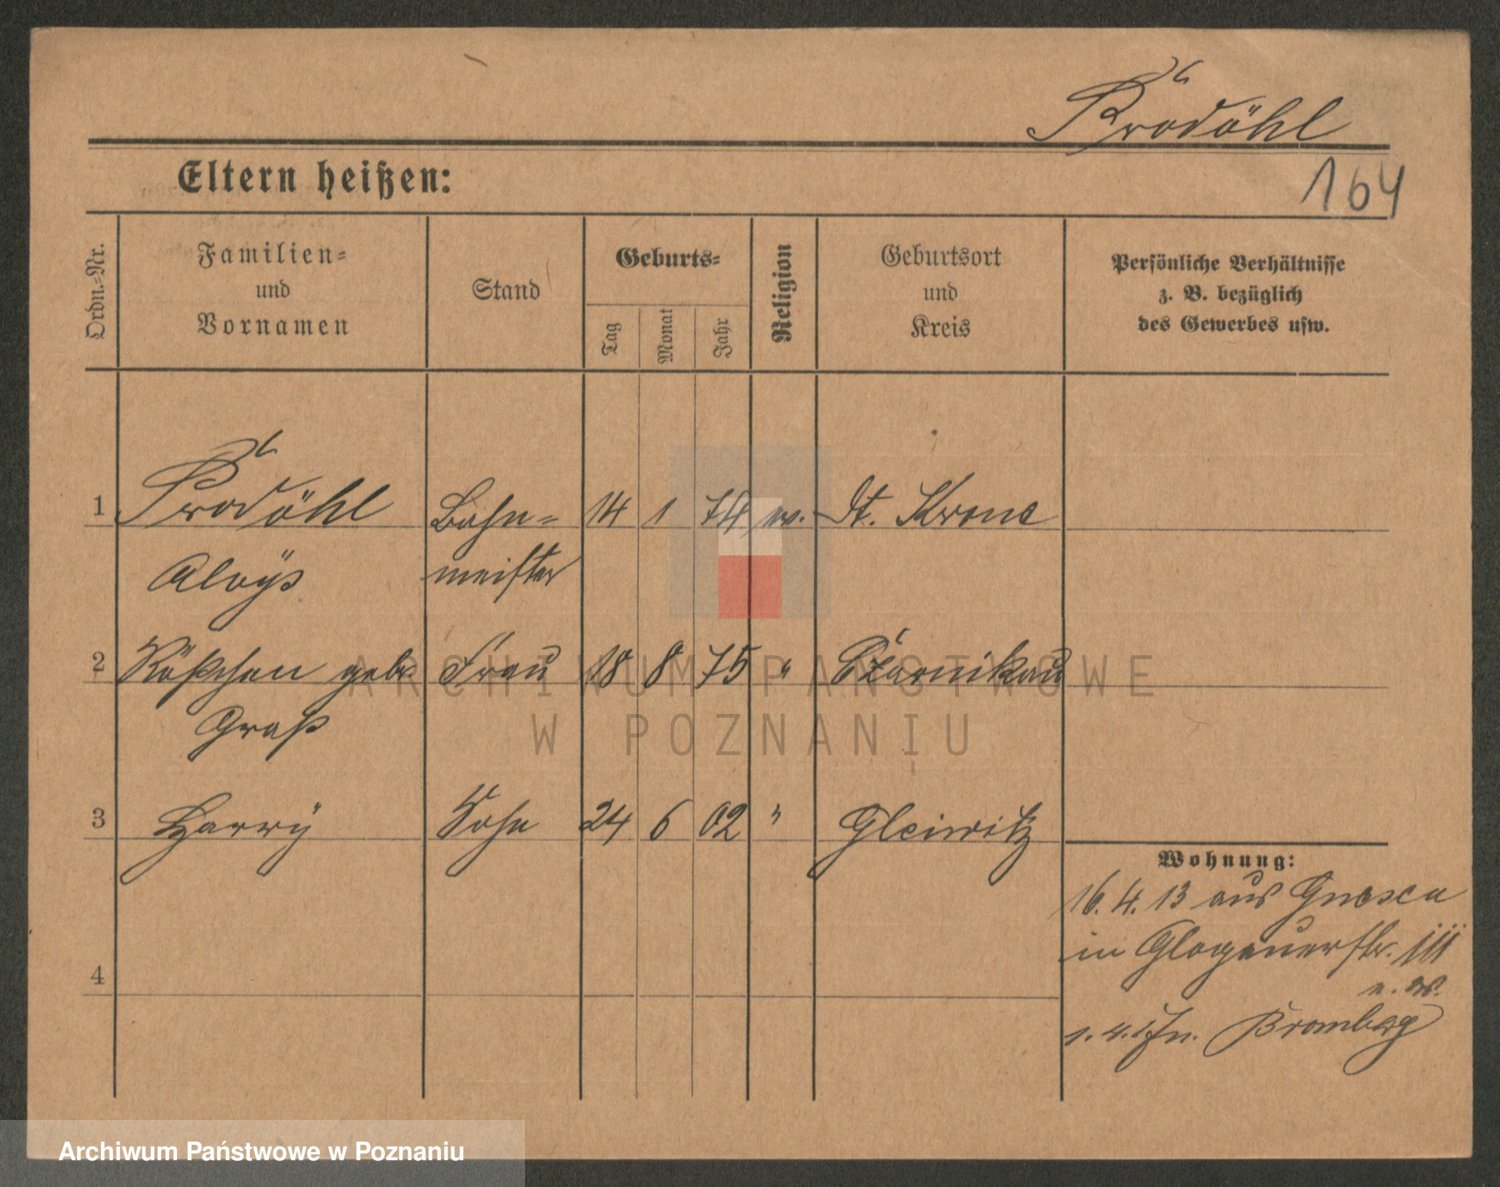 Prodöhl
Eltern heißen:
164
Ordn.-Nr.
Familien-
und
Vornamen
Stand
Geburts-
Tag
Monat
Jahr
Religion
Geburtsort
und
Kreis
Persönliche Verhältnisse
z. B. bezüglich
des Gewerbes usw.
1 Prodöhl Bahn- 14 1 74 ev. Dt. Krone
Aloys meister
2 geb. Frau 18 8 75 " Czarnikau
Graß
3 Harry Sohn 24 6 02 " Gleiwitz
Wohnung:
16. 4. 13 aus Gnesen
in Glogauerstr. 111
4
n. Bromberg
ARCHIWUM PAŃSTWOWE
W POZNANIU
Archiwum Państwowe w Poznaniu